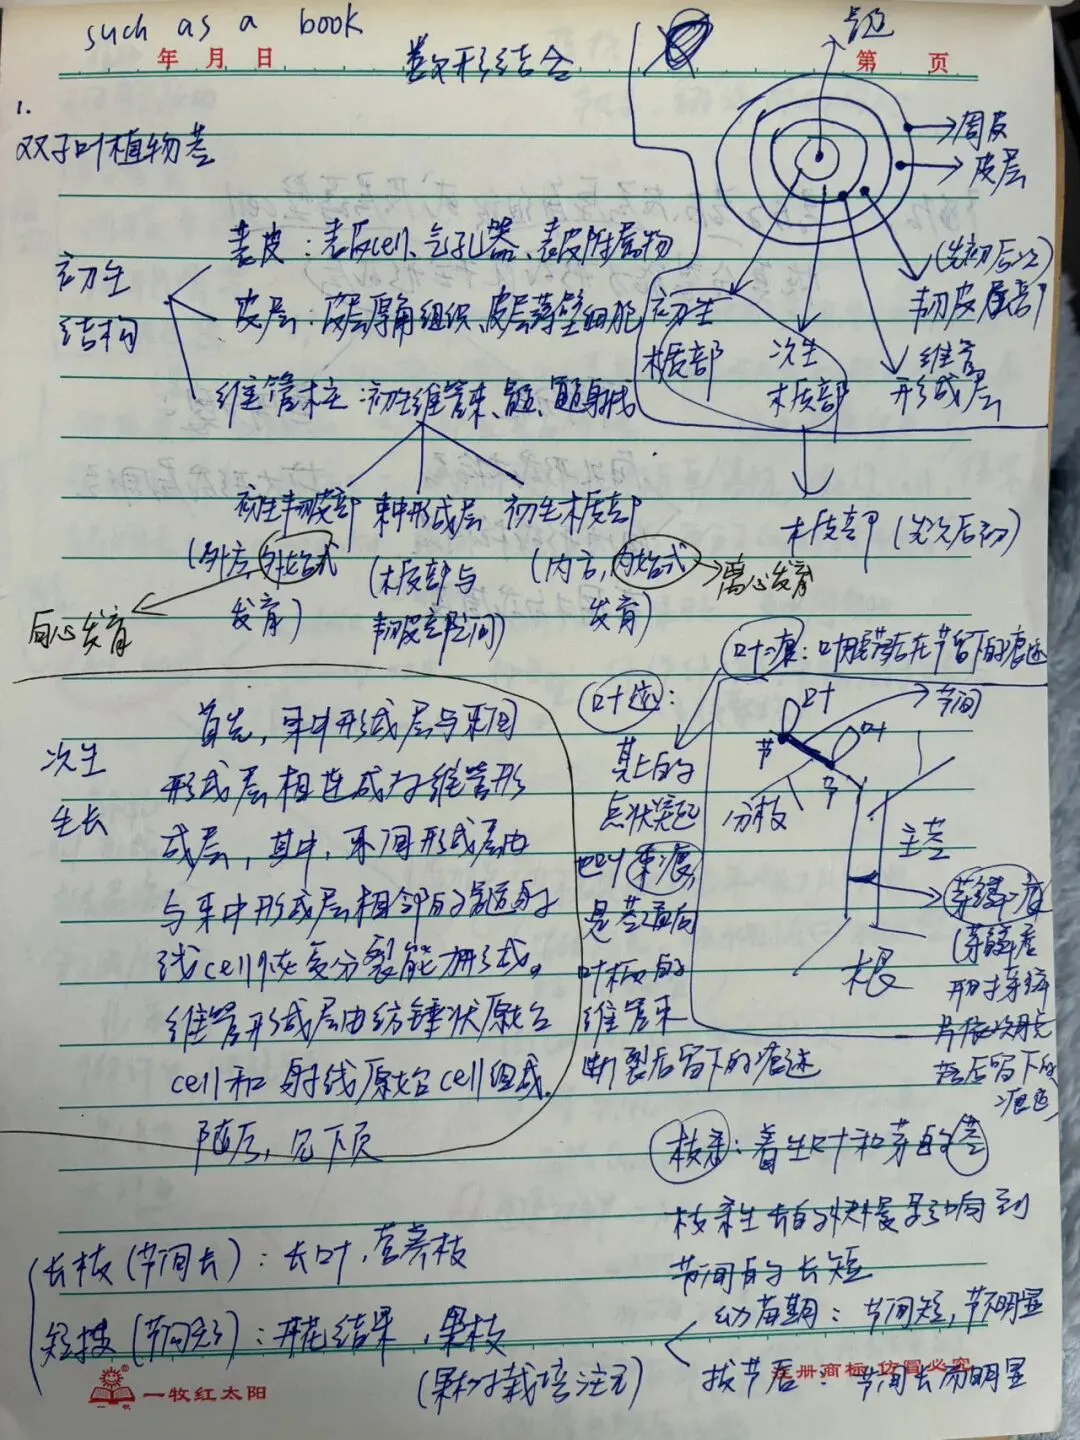 such as a book
年 月 日
数形结合
第 页
髓
1.
双子叶植物茎
周皮
皮层
(先初后次)
韧皮部
维管
形成层
初生
木质部
次生
木质部
木质部 (先次后初)
初生
结构
表皮：表皮cell、气孔器、表皮附属物
皮层：皮层厚角组织、皮层薄壁细胞
维管柱：初生维管束、髓、髓射线
初生韧皮部
(外方,外始式
发育)
向心发育
束中形成层
(木质部与
韧皮部间)
初生木质部
(内方,内始式
发育)
离心发育
次生
生长
首先，束中形成层与束间
形成层相连成为维管形
成层，其中，束间形成层由
与束中形成层相邻的髓射
线cell恢复分裂能力形成。
维管形成层由纺锤状原始
cell和射线原始cell组成.
随后，见下页
叶痕：叶脱落后在节留下的痕迹
叶迹：
其上的
点状突起
也叫束痕,
是茎通向
叶柄的
维管束
断裂后留下的痕迹
叶
节间
节
叶
节
分枝
主茎
根
芽鳞痕
(芽鳞痕
落后留下的
枝条：着生叶和芽的茎
枝条生长的快慢影响到
节间的长短
幼苗期：节间短,节不明显
拔节后 节间长而明显
长枝(节间长)：长叶,营养枝
短枝(节间短)：开花结果，果枝
(果树栽培注意)
一牧红太阳
注册商标 仿冒必究